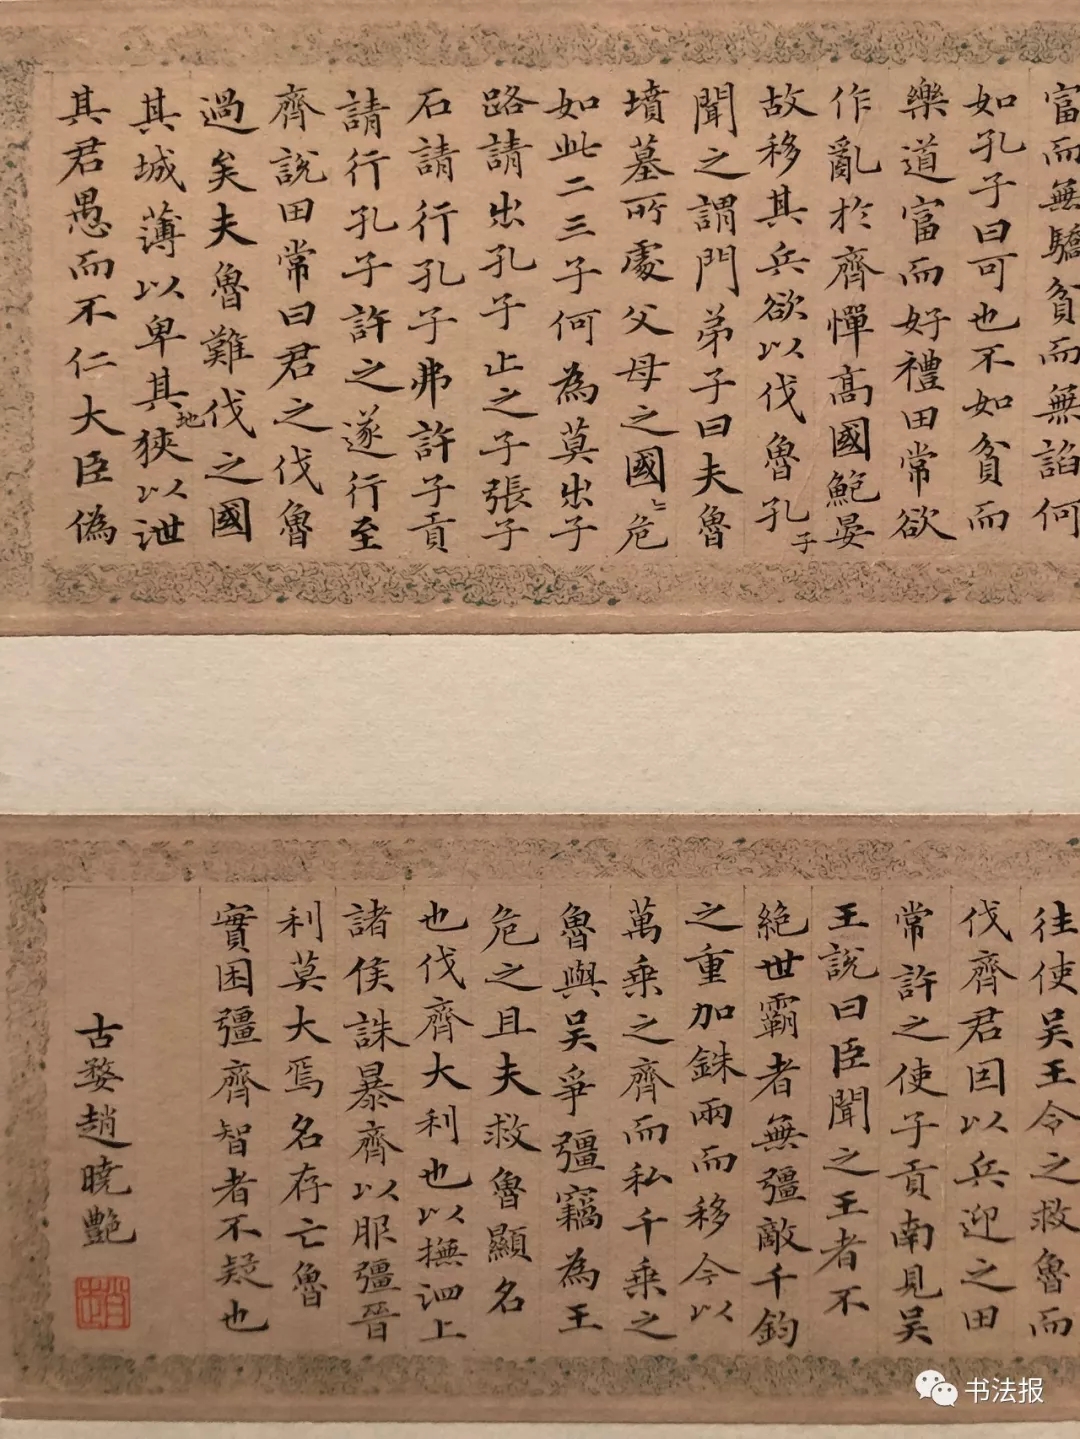 富而無驕貧而無諂何
如孔子曰可也不如貧而
樂道富而好禮田常欲
作亂於齊憚高國鮑晏
故移其兵欲以伐魯孔子
聞之謂門弟子曰夫魯
墳墓所處父母之國〻危
如此二三子何為莫出子
路請出孔子止之子張子
石請行孔子弗許子貢
請行孔子許之遂行至
齊說田常曰君之伐魯
過矣夫魯難伐之國
其城薄以卑其地狹以泄
其君愚而不仁大臣偽
往使吴王令之救魯而
伐齊君因以兵迎之田
常許之使子貢南見吴
王說曰臣聞之王者不
絕世霸者無彊敵千鈞
之重加銖兩而移今以
萬乘之齊而私千乘之
魯與吴爭彊竊為王
危之且夫救魯顯名
也伐齊大利也以撫泗上
諸侯誅暴齊以服彊晉
利莫大焉名存亡魯
實困彊齊智者不疑也
古婺趙曉艷
书法报